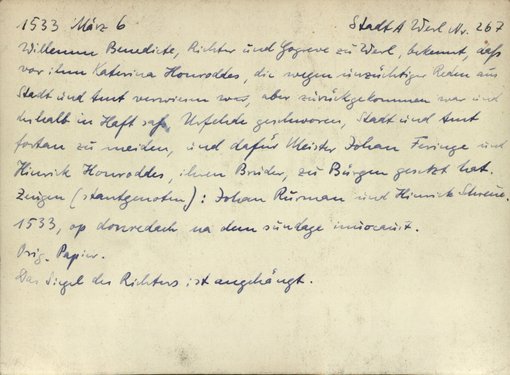 1533 März 6 StadtA Werl Nr. 267
Willemm Benedicte, Richter und Gogreve zu Werl, bekennt, dass
vor ihm Katerina Honroddes, die wegen unzüchtiger Reden aus
Stadt und Amt verwiesen war, aber zurückgekommen war und
deshalb in Haft saß, Urfehde geschworen, Stadt und Amt
fortan zu meiden, und dafür Meister Johan Feringe und
Hinrick Honroddes, ihren Bruder, zu Bürgen gesetzt hat.
Zeugen (stantgenoten): Johan Rurman und Hinrick
1533, op donredach na dem sundage invocavit.
Orig. Papier.
Das Siegel des Richters ist angehängt.